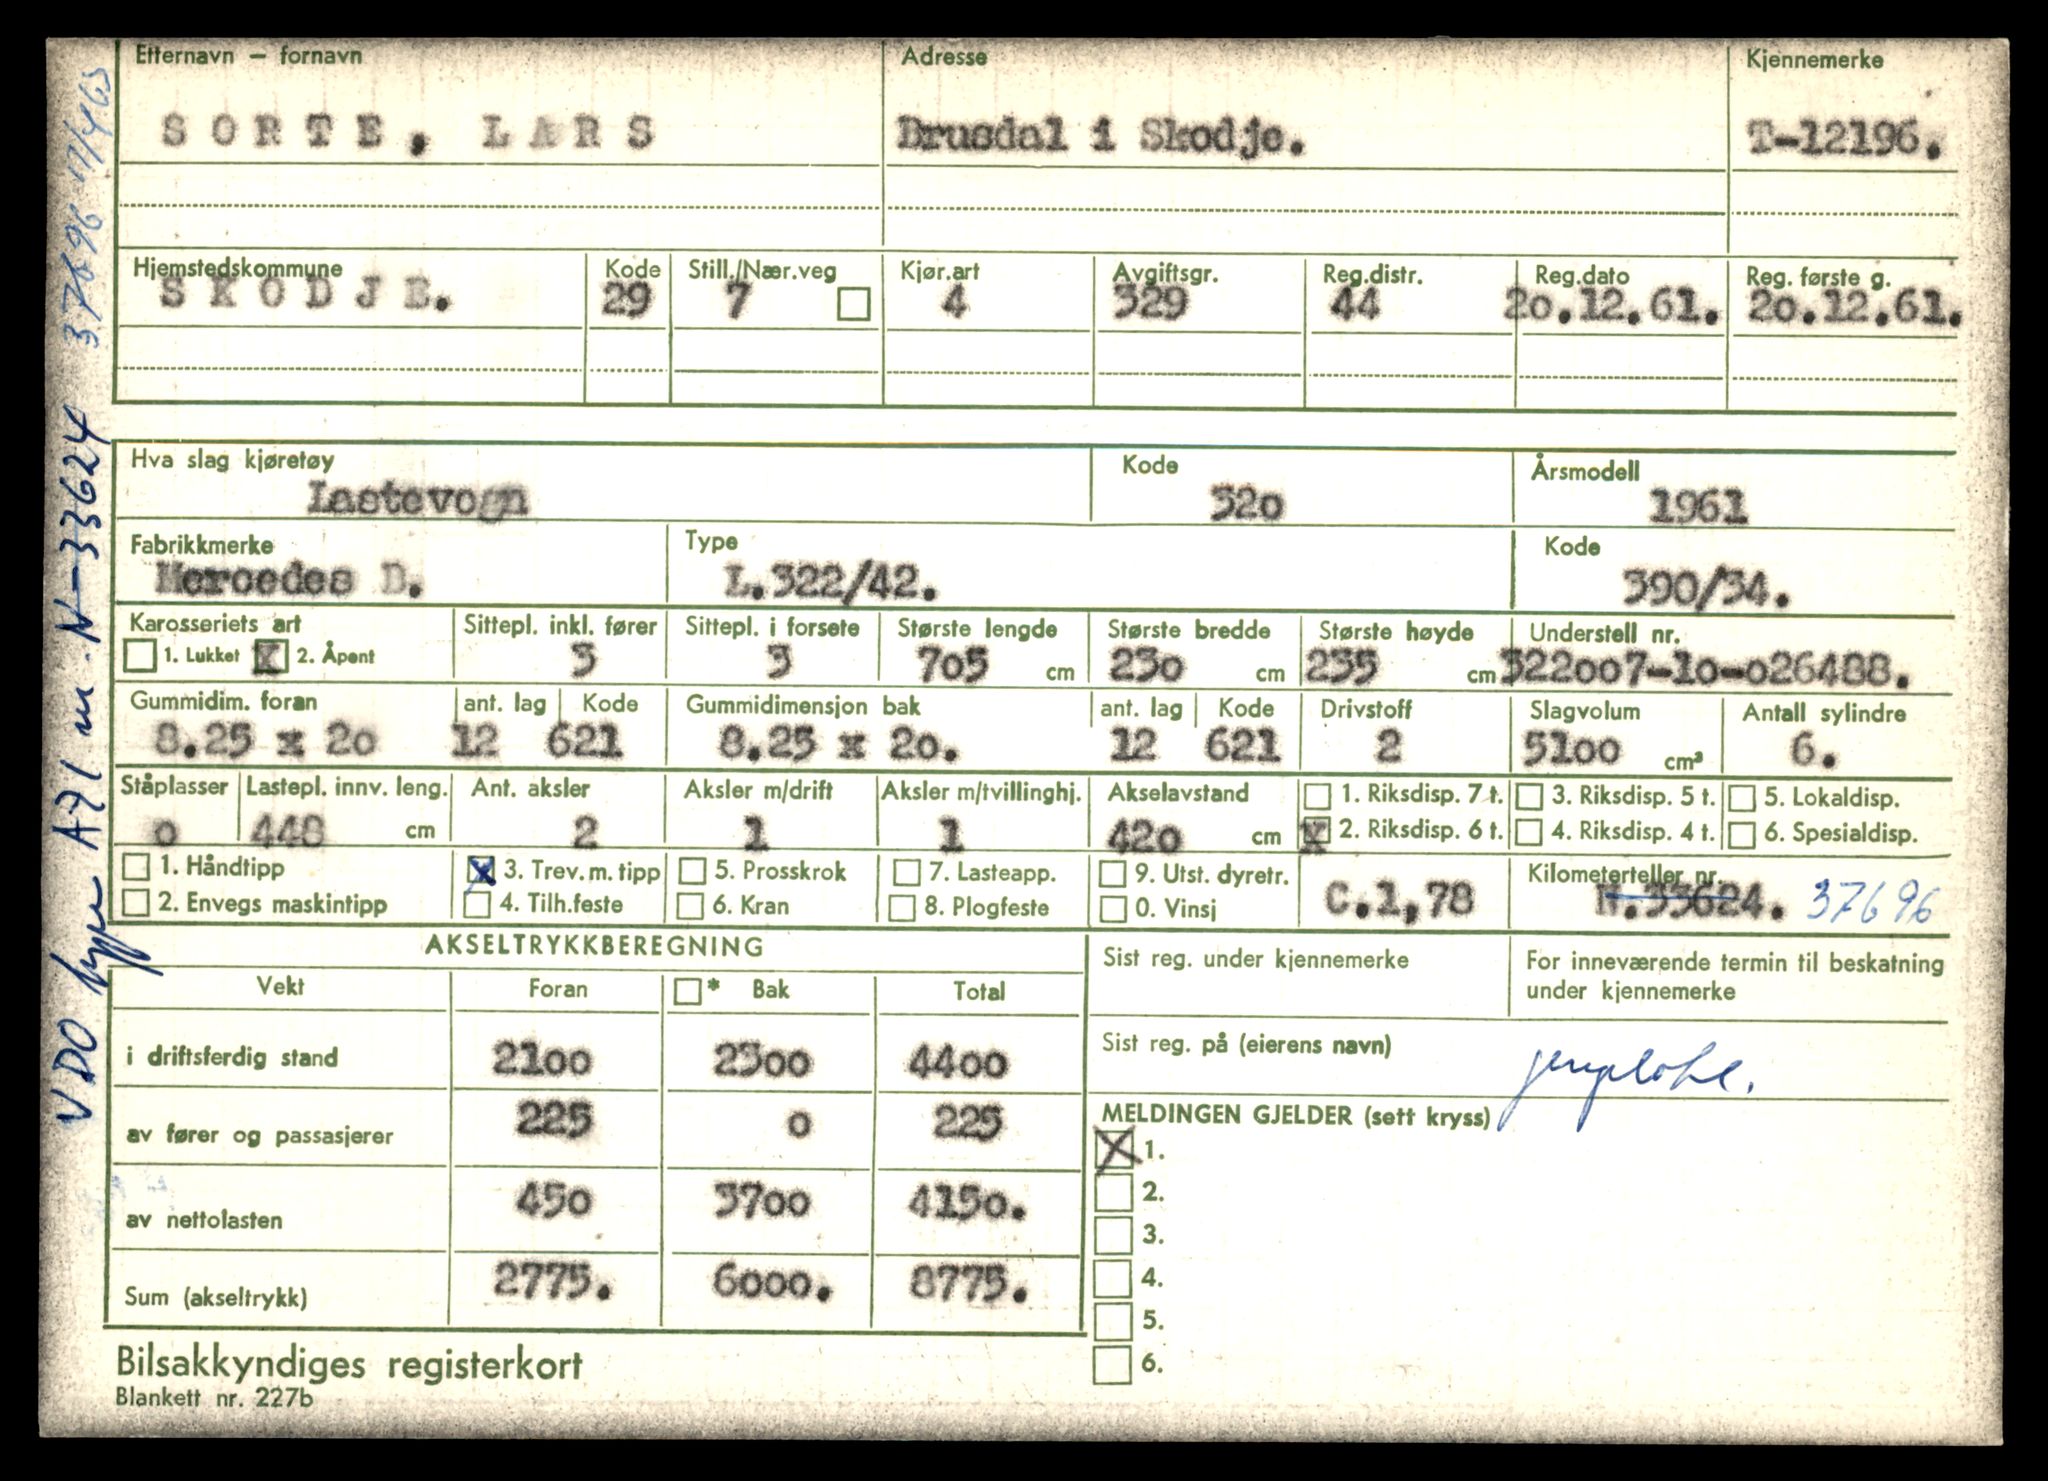 Etternavn – fornavn Adresse Kjennemerke
SORTE, LARS Drusdal i Skodje. T-12196.
Hjemstedskommune Kode Still./Nær.veg Kjør.art Avgiftsgr. Reg.distr. Reg.dato Reg. første g.
SKODJE. 29 7 4 329 44 20.12.61. 20.12.61.
Hva slag kjøretøy Kode Årsmodell
Lastevogn 320 1961
Fabrikkmerke Type Kode
Mercedes D. L.322/42. 390/34.
Karosseriets art Sittepl. inkl. fører Sittepl. i forsete Største lengde Største bredde Største høyde Understell nr.
1. Lukket X 2. Åpent 3 3 705 cm 230 cm 235 cm 322007-10-026488.
Gummidim. foran ant. lag Kode Gummidimensjon bak ant. lag Kode Drivstoff Slagvolum Antall sylindre
8.25 x 20 12 621 8.25 x 20. 12 621 2 5100 cm³ 6.
Ståplasser Lastepl. innv. leng. Ant. aksler Aksler m/drift Aksler m/tvillinghj. Akselavstand 1. Riksdisp. 7 t. 3. Riksdisp. 5 t. 5. Lokaldisp.
0 448 cm 2 1 1 420 cm X 2. Riksdisp. 6 t. 4. Riksdisp. 4 t. 6. Spesialdisp.
1. Håndtipp X 3. Trev. m. tipp 5. Prosskrok 7. Lasteapp. 9. Utst. dyretr. Kilometerteller nr.
2. Envegs maskintipp 4. Tilh.feste 6. Kran 8. Plogfeste 0. Vinsj C.1,78 N.33624. 37696
AKSELTRYKKBEREGNING
Sist reg. under kjennemerke For inneværende termin til beskatning
under kjennemerke
Vekt Foran * Bak Total
Sist reg. på (eierens navn)
i driftsferdig stand 2100 2300 4400
MELDINGEN GJELDER (sett kryss)
av fører og passasjerer 225 0 225
X 1.
2.
av nettolasten 450 3700 4150.
3.
4.
Sum (akseltrykk) 2775. 6000. 8775.
5.
6.
Bilsakkyndiges registerkort
Blankett nr. 227b
VDO type A71 m. N-33624 37696 17/4 63